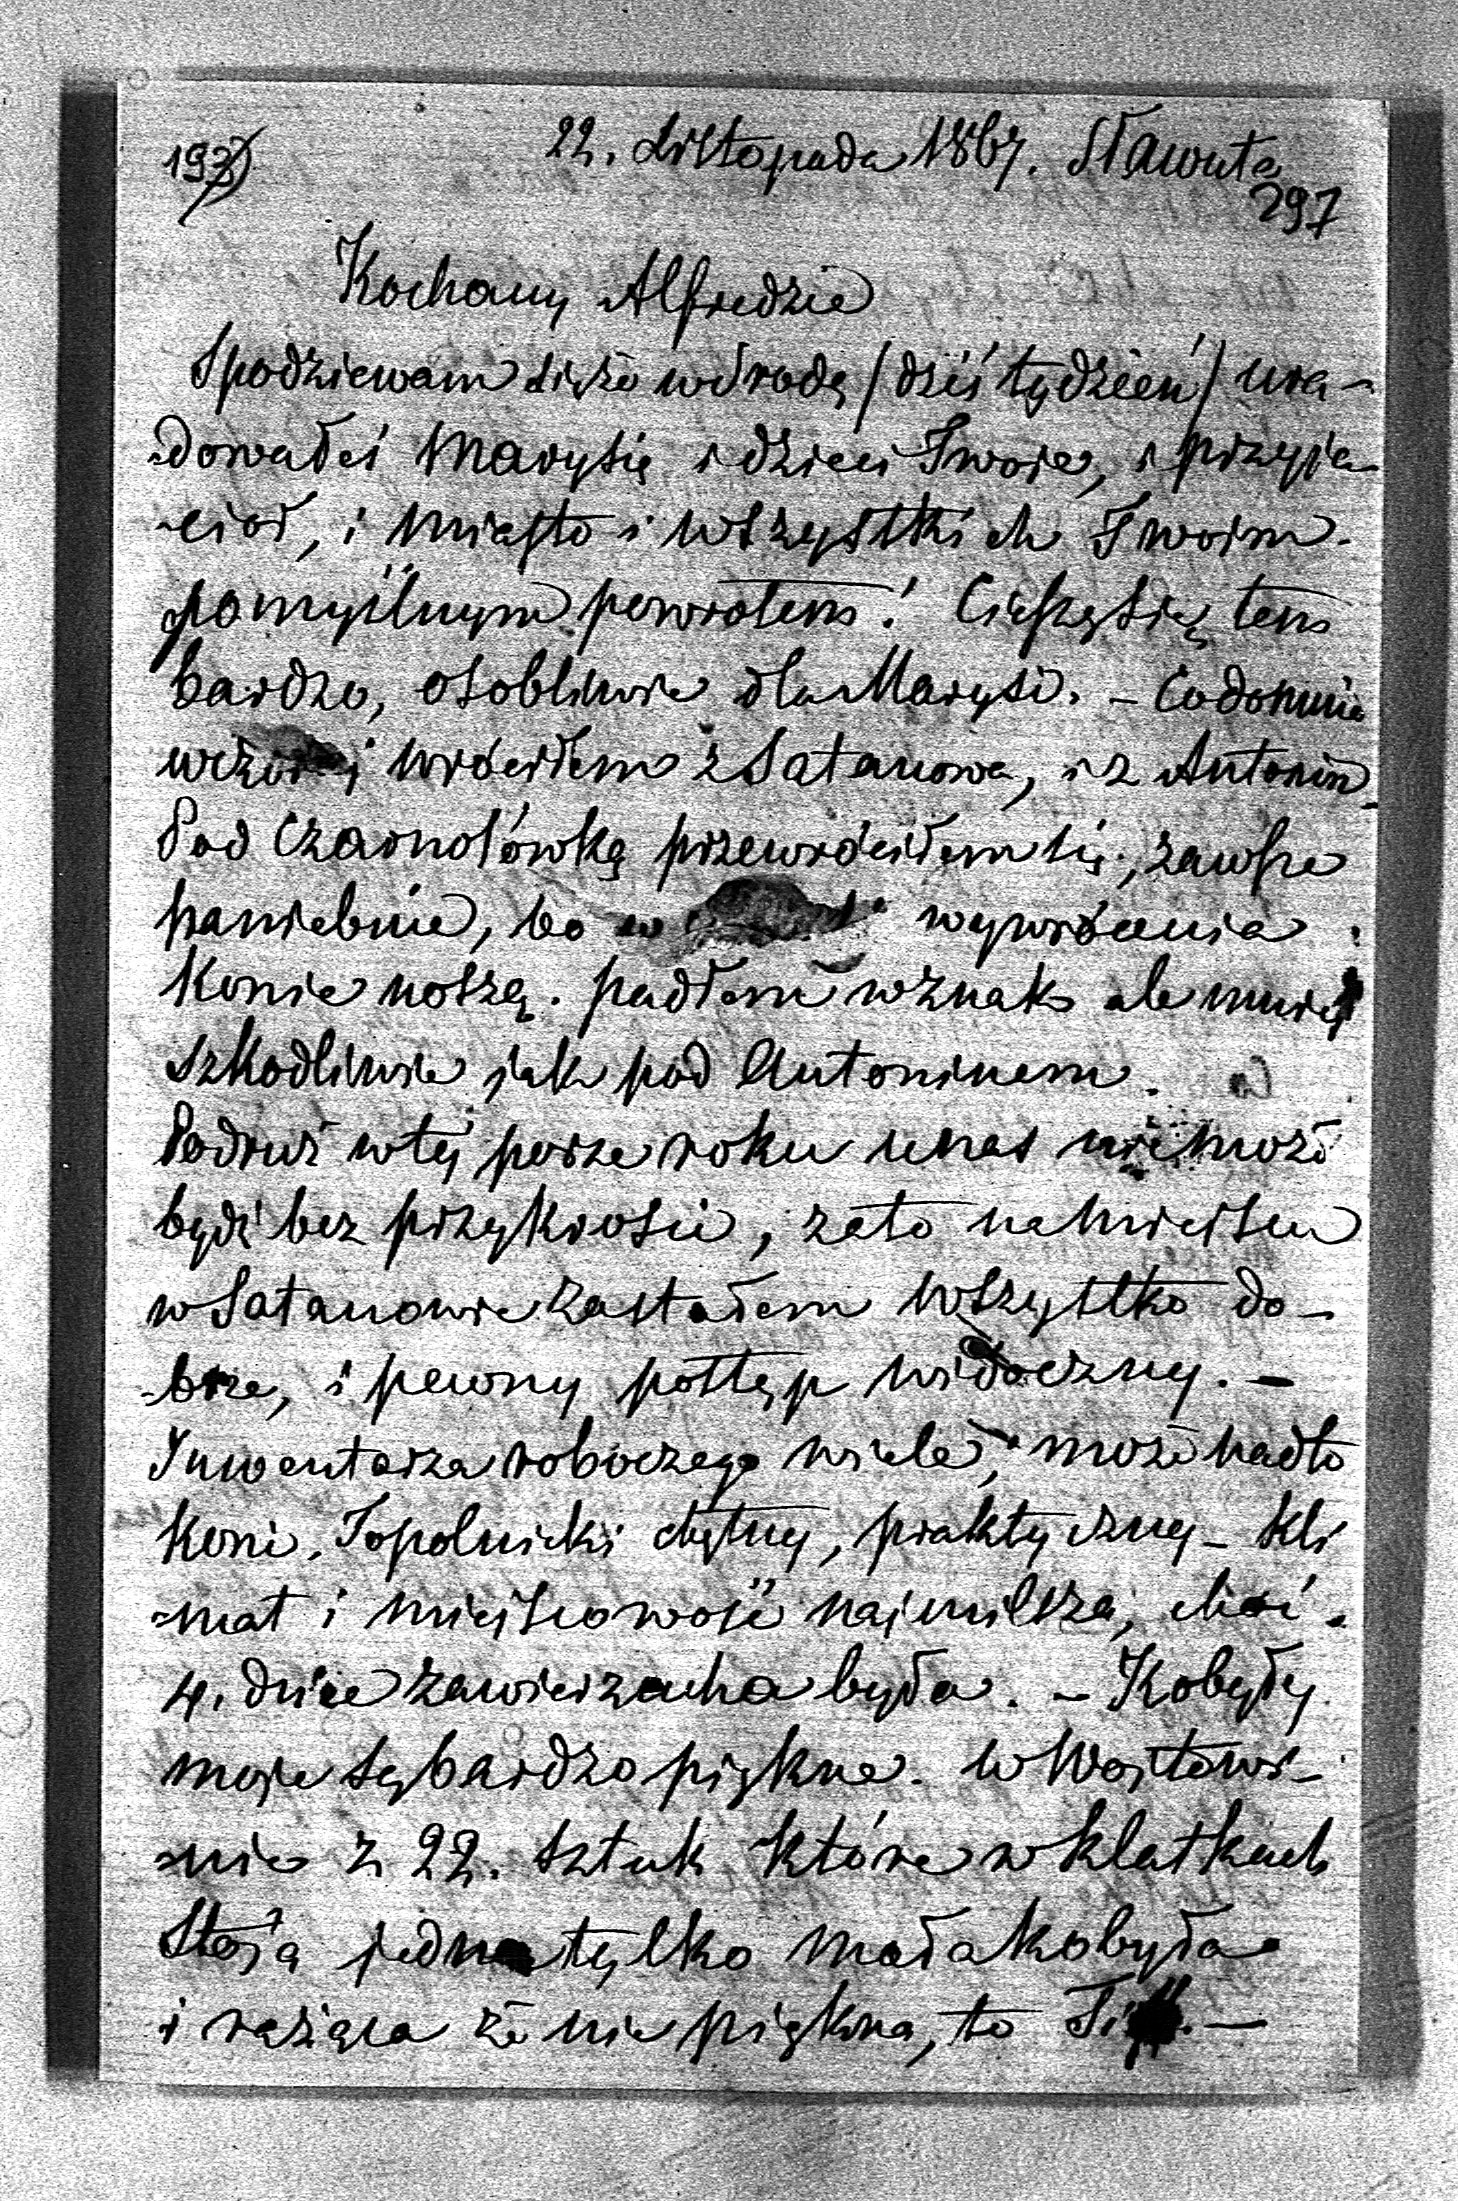 193
22. Listopada 1867. Sławuta
297
Kochany Alfredzie
Spodziewam się że w środę /dziś tydzień/ ura-
-dowałeś Marysię i dzieci Twoje, i przyja-
-ciół, i miasto i wszystkich Twoim
pomyślnym powrotem! Cieszę się tem
bardzo, osobliwie dla Marysi. – Co do mnie
wczoraj wróciłem z Satanowa, i z Antonin
Pod Czarnołówką przewróciłem się, zawsze
haniebnie, bo w wywrócenia
konie noszą. padłem wznak ale mniej
szkodliwie jak pod Antoninem.
Podróż w tej porze roku u nas nie może
bydź bez przykrości, za to na miejscu
w Satanowie zastałem wszystko do-
-brze, i pewny postęp widoczny. –
Inwentarza roboczego wiele, może nadto
koni. Topolnicki chętny, praktyczny – kli
-mat i miejscowość najmilsza, choć
4. dnie zawierzucha była. – Kobyły
moje są bardzo piękne. w Wojtowi-
-nie z 22. sztuk które w klatkach
stoją jedna tylko mała kobyła
i rażąca że nie piękna, to –